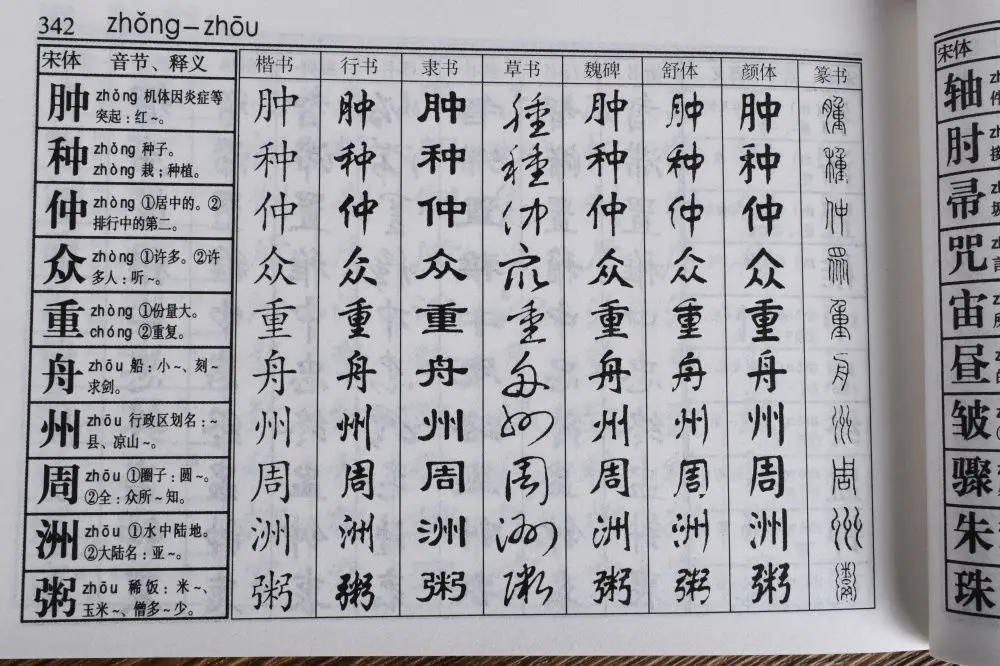 342 zhǒng—zhōu
宋体 音节、释义 楷书 行书 隶书 草书 魏碑 舒体 颜体 篆书
肿 zhǒng 机体因炎症等
突起:红~。
肿 肿 肿 肿 肿 肿 肿 腫
种 zhǒng 种子。
zhòng 栽;种植。
种 种 种 種 种 种 种 種
仲 zhòng ①居中的。②
排行中的第二。
仲 仲 仲 仲 仲 仲 仲 仲
众 zhòng ①许多。②许
多人:听~。
众 众 众 众 众 众 众 眾
重 zhòng ①份量大。
chóng ②重复。
重 重 重 重 重 重 重 重
舟 zhōu 船:小~、刻~
求剑。
舟 舟 舟 舟 舟 舟 舟 舟
州 zhōu 行政区划名:~
县、凉山~。
州 州 州 州 州 州 州 州
周 zhōu ①圈子:圆~。
②全:众所~知。
周 周 周 周 周 周 周 周
洲 zhōu ①水中陆地。
②大陆名:亚~。
洲 洲 洲 洲 洲 洲 洲 州
粥 zhōu 稀饭:米~、
玉米~、僧多~少。
粥 粥 粥 粥 粥 粥 粥 鬻
宋体
轴
肘
帚
咒
宙
昼
皱
骤
朱
珠